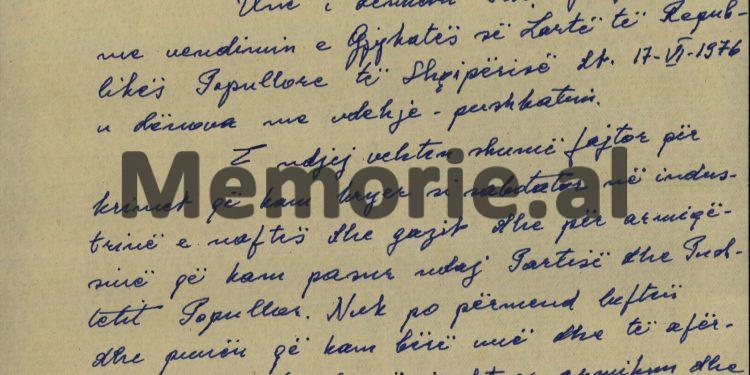 Unë i dënuari
me vendimin e Gjykatës së Lartë të Repub-
likës Popullore të Shqipërisë dt. 17-VI-1976
u dënova me vdekje - pushkatim.
E ndjej vehten shumë fajtor për
krimet që kam kryer si sabotator në indus-
trinë e naftës dhe gazit dhe për armiqë-
sinë që kam pasur ndaj Partisë dhe Push-
tetit Popullor. Nuk po përmend luftën
dhe punën që kam bërë unë dhe të afër-
Memorie.al